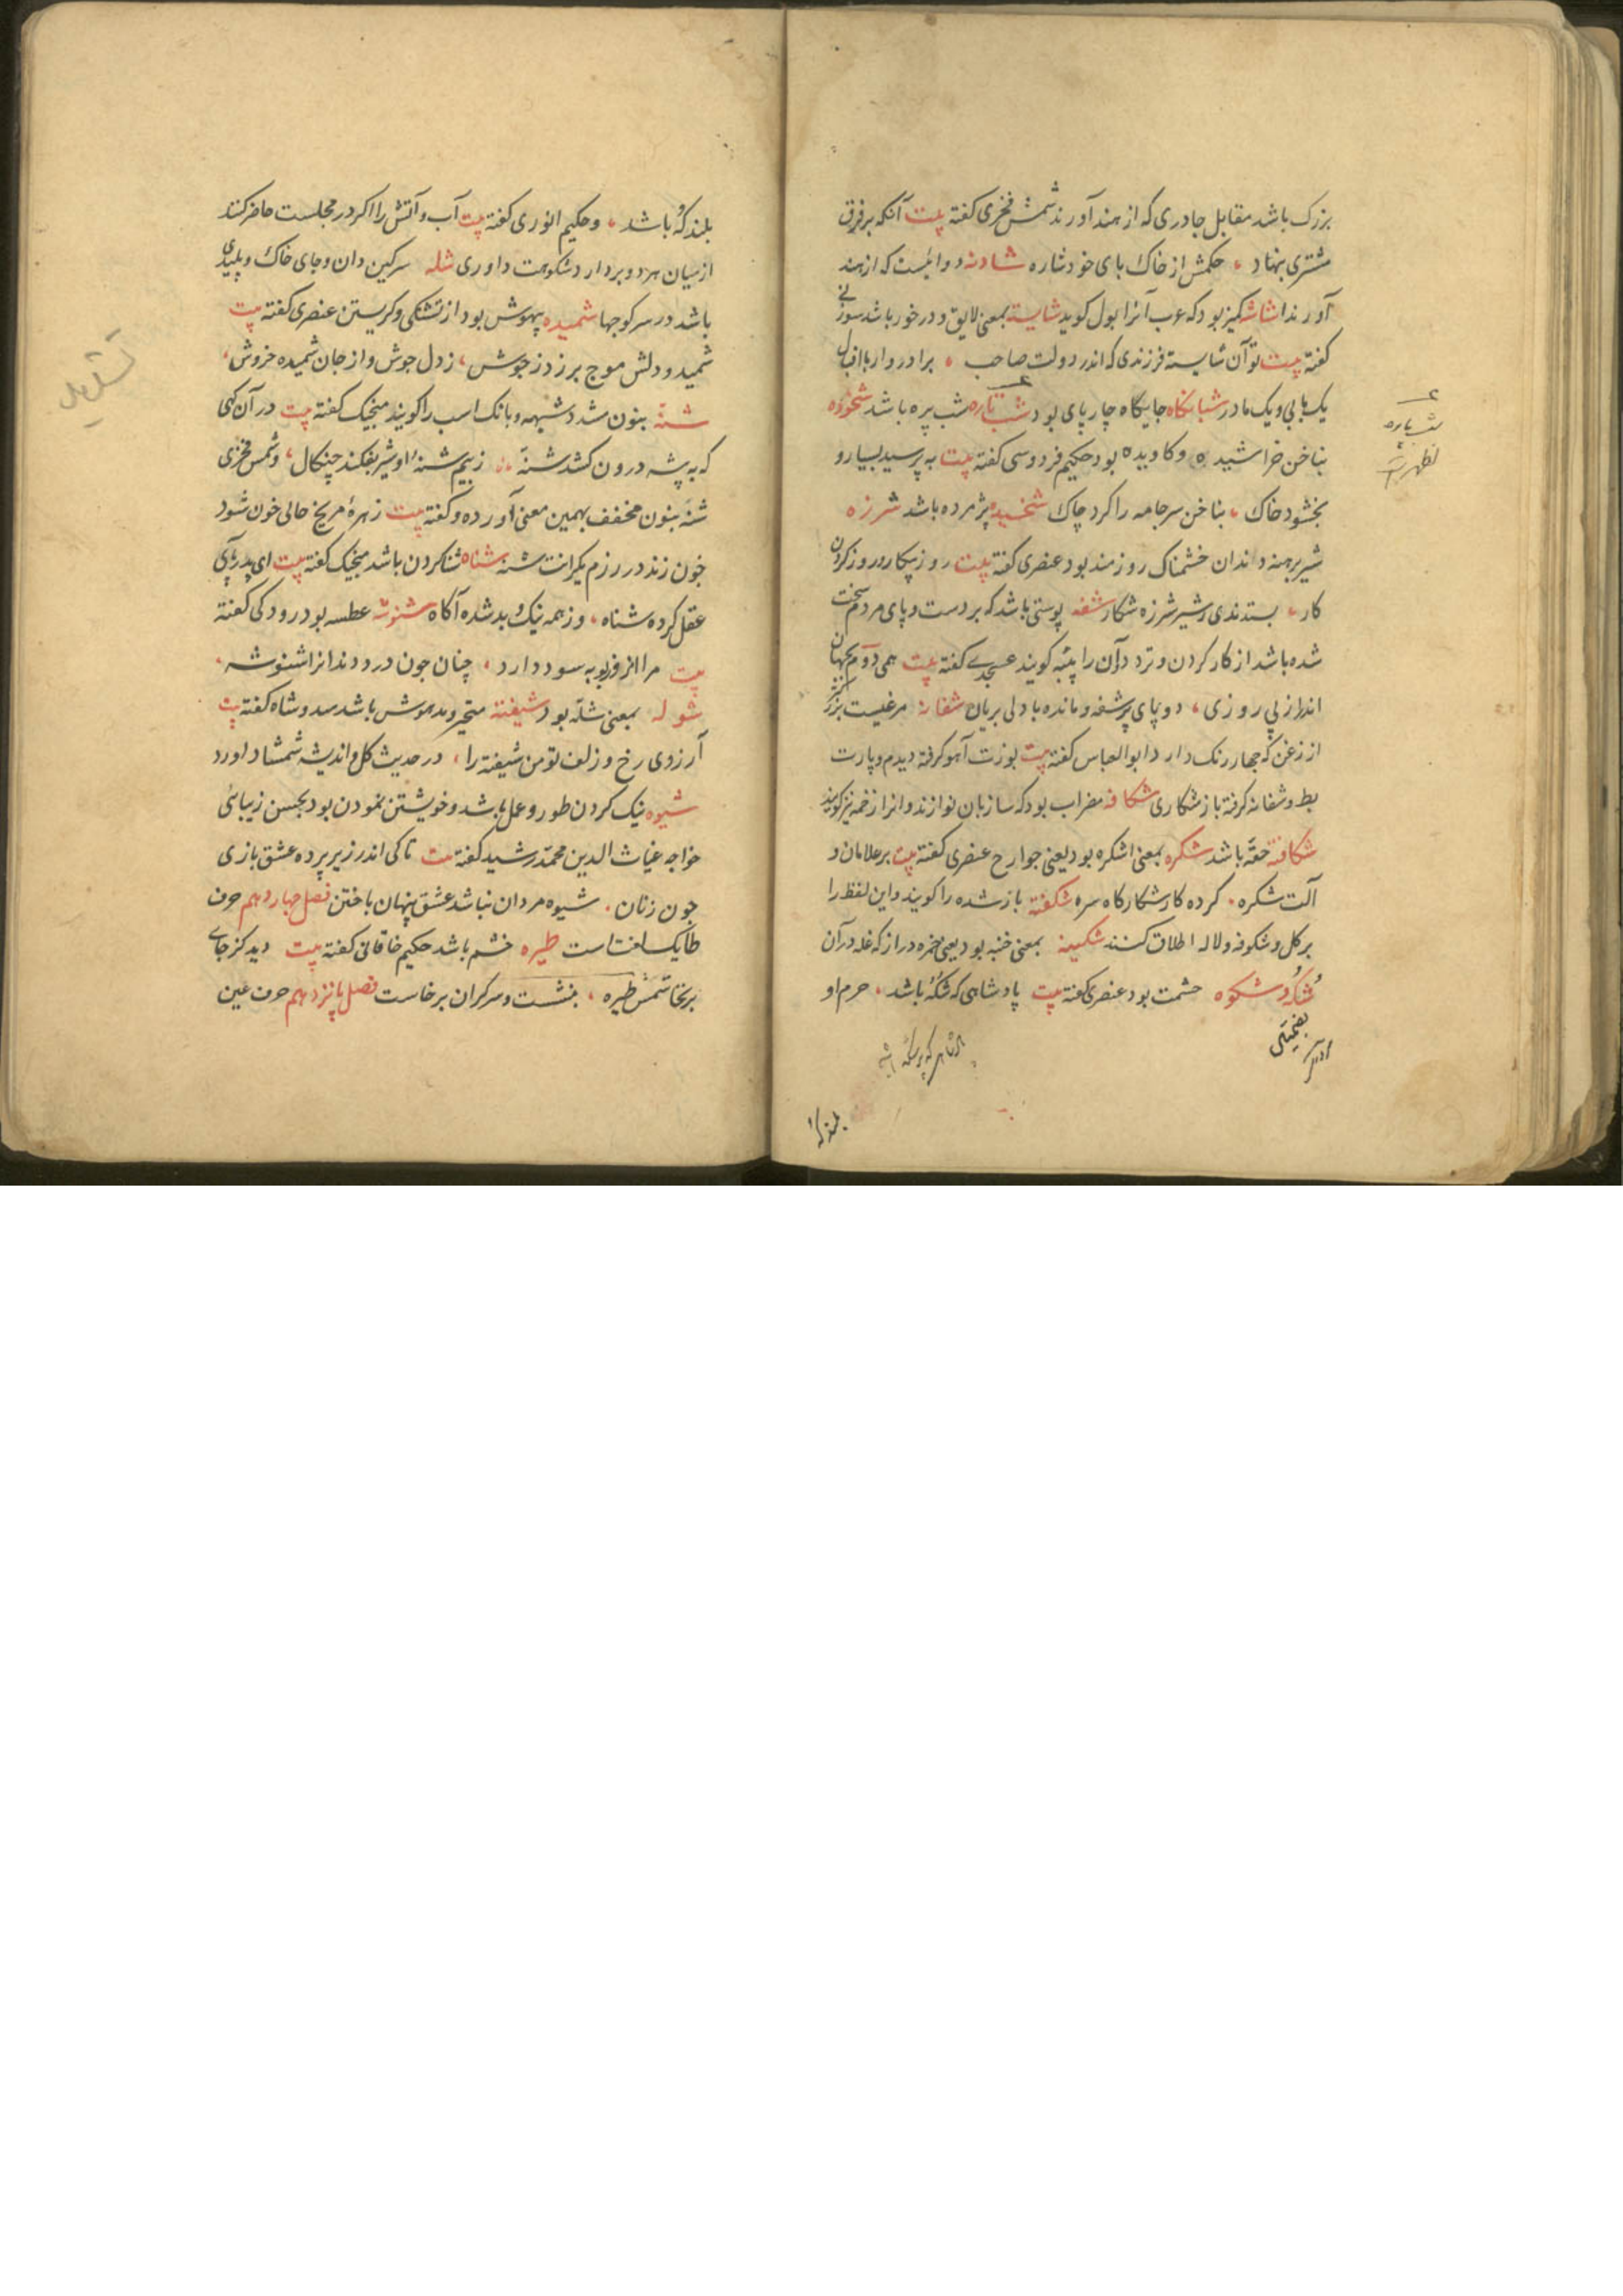 بزرک باشد مقابل جادری که از هند آورند شمس فخری کفته بیت آنکه بر فرق
مشتری بنهاد حکمش از خاک بای خود شاره شادنه دوائیست که از هند
آورند شاشه کمیز بود که عرب آنرا بول کوید شایسته بمعنی لایق و درخور باشد سوزنی
کفته بیت تو آن شایسته فرزندی که اندر دولت صاحب برادروار با اقبال
یک بابی و یک مادر شبانکاه جایکاه چارپای بود شب تاره شب پره باشد شخوده
بناخن خراشیده و کاویده بود حکیم فردوسی کفته بیت به پرسید بسیار و
بخشود خاک بناخن سر جامه را کرد چاک شخیده پژمرده باشد شرزه
شیر برهنه دندان خشمناک روزمند بود عنصری کفته بیت روز پیکار و روز کردن
کار بستدندی ز شیر شرزه شکار شغه پوستی باشد که بر دست و پای مردم سخت
شده باشد از کار کردن و تردد و آن را پینه کویند عسجدی کفته بیت همی دوم بجهان
اندر از پی روزی دو پای پر شغه و مانده با دلی بریان شفانه مرغیست بزرکتر
از زغن که جهار رنک دارد ابو العباس کفته بیت بوزت آهو کرفته دیدم و پارت
بط و شفانه کرفته باز شکاری شکافه مضراب بود که سازبان نوازند و انرا زخمه نیز کویند
شکافته حقه باشد شکره بمعنی اشکره بود یعنی جوارح عنصری کفته بیت بر غلامان و
آلت شکره کرده کار شکارکاه سره شکفته باز شده را کویند و این لفظ را
بر کل و شکوفه و لاله اطلاق کنند شکینه بمعنی خنبه بود یعنی خمره دراز که غله در آن
شکه و شکوه حشمت بود عنصری کفته بیت پادشاهی که شکه باشد حرم او
بلند که باشد و حکیم انوری کفته بیت آب و آتش را اکر در مجلست حاضر کنند
از میان هر دو بردارد شکوهت داوری شله سرکین دان و جای خاک و پلیدی
باشد در سر کوجها شمیده بیهوش بود از تشنکی و کریستن عنصری کفته بیت
شمید و دلش موج بر زد ز جوش ز دل جوش و از جان شمیده خروش
شنه بنون مشدد شیهه و بانک اسب را کویند منجیک کفته بیت در آن کهی
که به پیشه درون کشد شنه ز بیم شنه او شیر بفکند چنکال و شمس فخری
شنه بنون مخفف بهمین معنی آورده و کفته بیت زهره مریخ حالی خون شود
چون زند در رزم یکرانت شنه شناه شنا کردن باشد منجیک کفته بیت ای بدریای
عقل کرده شناه و ز همه نیک و بد شده آکاه شنوشه عطسه بود رودکی کفته
بیت مرا امروز توبه سود دارد چنان چون دردمندانرا شنوشه
شوله بمعنی شله بود شیفته متحیر و مدهوش باشد سد و شاه کفته بیت
آرزوی رخ و زلف تو من شیفته را در حدیث کل و اندیشه شمشاد آورد
شیوه نیک کردن طور و عمل باشد و خویشتن نمودن بود بحسن زیبائی
خواجه غیاث الدین محمد رشید کفته بیت تا کی اندر زیر پرده عشق بازی
چون زنان شیوه مردان نباشد عشق پنهان باختن فصل جهاردهم حرف
طا یک لغت است طیره خشم باشد حکیم خاقانی کفته بیت دید کز جای
برنخاستمش طیره بنشست و سرکران برخاست فصل پانزدهم حرف عین